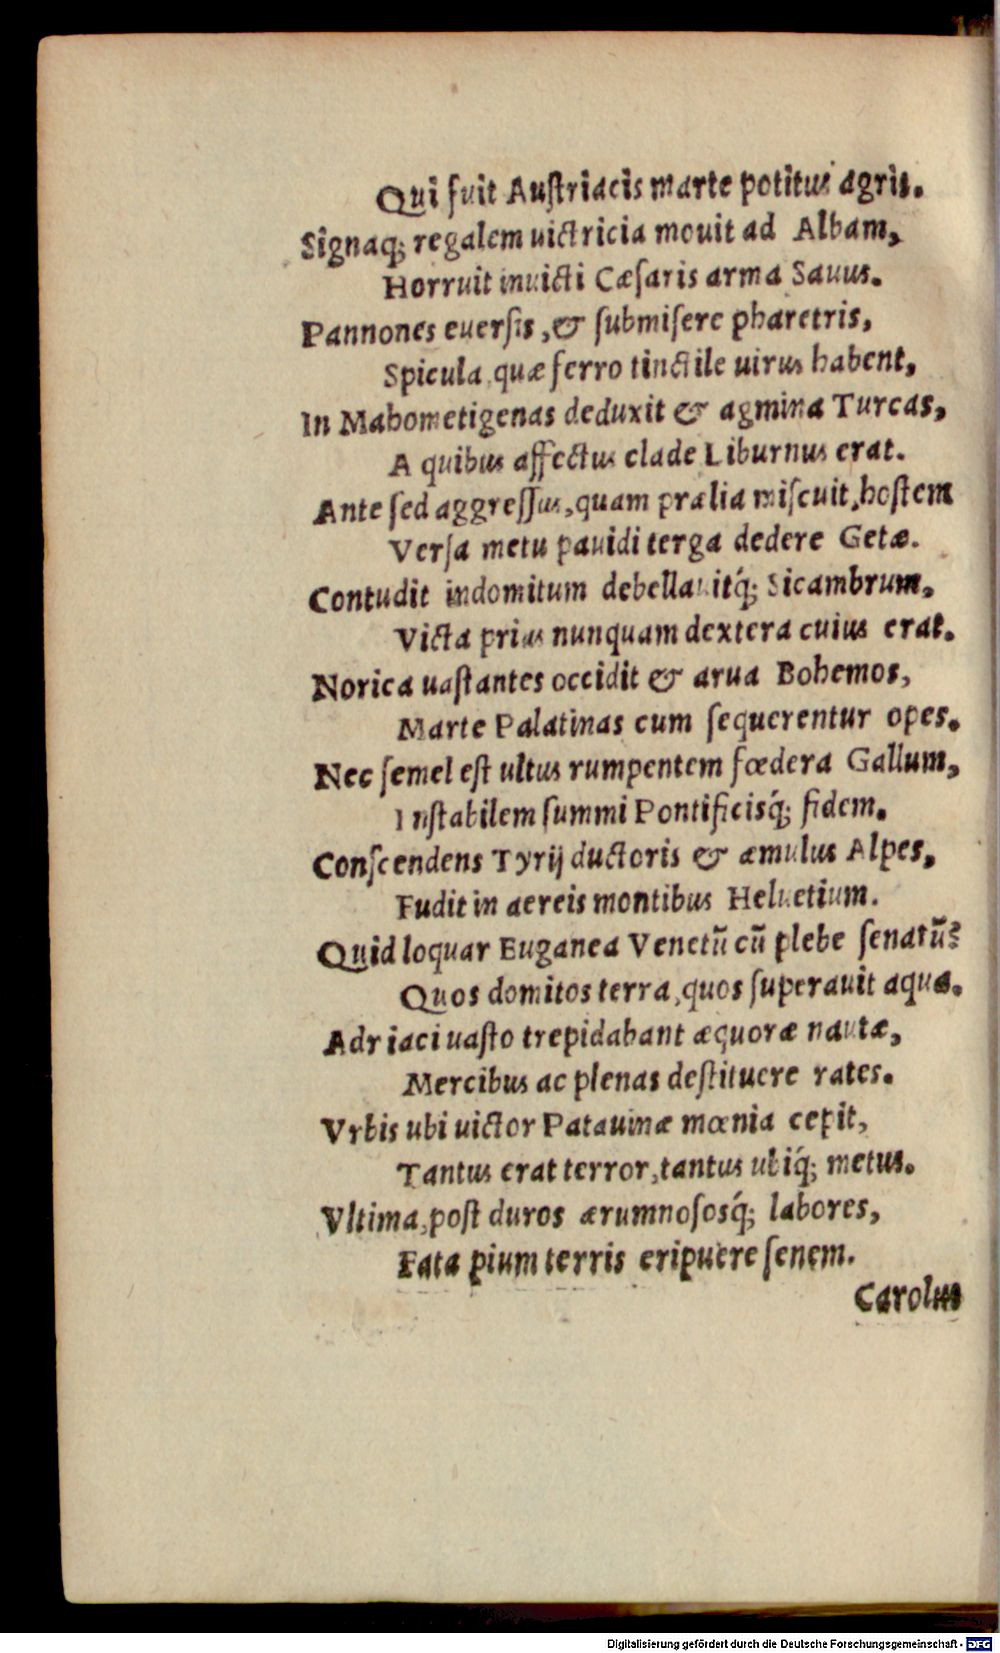 Qui fuit Austriacis marte potitus agris.
Signaq́; regalem uictricia mouit ad Albam,
Horruit inuicti Cæsaris arma Sauus.
Pannones euersis, & submisere pharetris,
Spicula, quæ ferro tinctile uirus habent,
In Mahometigenas deduxit & agmina Turcas,
A quibus affectus clade Liburnus erat.
Ante sed aggressus, quam prælia miscuit, hostem
Versa metu pauidi terga dedere Getæ.
Contudit indomitum debellauitq́; Sicambrum,
Victa prius nunquam dextera cuius erat.
Norica uastantes occidit & arua Bohemos,
Marte Palatinas cum sequerentur opes.
Nec semel est ultus rumpentem fœdera Gallum,
Instabilem summi Pontificisq́; fidem.
Conscendens Tyrij ductoris & æmulus Alpes,
Fudit in aereis montibus Heluetium.
Quid loquar Euganea Venetũ cũ plebe senatũ?
Quos domitos terra, quos superauit aqua.
Adriaci uasto trepidabant æquoræ nautæ,
Mercibus ac plenas destituere rates.
Vrbis ubi uictor Patauinæ mœnia cepit,
Tantus erat terror, tantus ubiq́; metus.
Vltima, post duros ærumnososq́; labores,
Fata pium terris eripuere senem.
Carolus
Digitalisierung gefördert durch die Deutsche Forschungsgemeinschaft - DFG